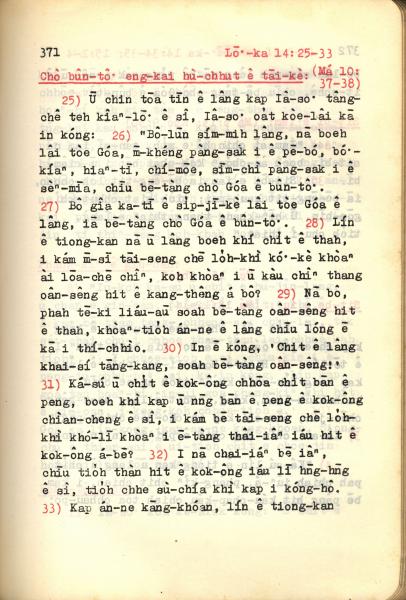 371 Lō͘-ka 14:25-33
Chò bûn-tô͘ eng-kai hù-chhut ê tāi-kè: (Má 10:
37-38)
25) Ū chin tōa tīn ê lâng kap Iâ-so͘ tâng-
chê teh kiâⁿ-lō͘ ê sî, Iâ-so͘ oa̍t kòe-lâi kā
in kóng: 26) "Bô-lūn sím-mih lâng, nā boeh
lâi tòe Góa, m̄-khéng pàng-sak i ê pē-bó, bó͘-
kíaⁿ, hiaⁿ-tī, chí-mōe, sīm-chì pàng-sak i ê
sèⁿ-mia, chīu bē-tàng chò Góa ê bûn-tô͘.
27) Bô gîa ka-tī ê si̍p-jī-kè lâi tòe Góa ê
lâng, iā bē-tàng chò Góa ê bûn-tô͘. 28) Lín
ê tiong-kan nā ū lâng boeh khí chi̍t ê thah,
i kám m̄-sī tāi-seng chē lo̍h-khì kó͘-kè khòaⁿ
ài lōa-chē chîⁿ, koh khòaⁿ i ū kàu chîⁿ thang
oân-sêng hit ê kang-thêng á bô? 29) Nā bô,
phah tē-ki liáu-āu soah bē-tàng oân-sêng hit
ê thah, khòaⁿ-tio̍h án-ne ê lâng chīu lóng ē
kā i thí-chhìo. 30) In ē kóng, 'Chit ê lâng
khai-sí tāng-kang, soah bē-tàng oân-sêng!'
31) Ká-sú ū chi̍t ê kok-ông chhōa chi̍t bān ê
peng, boeh khì kap ū nn̄g bān ê peng ê kok-ông
chiàn-cheng ê sî, i kám bē tāi-seng chē lo̍h
khì khó-lī khòaⁿ i ē-tàng thai-iâⁿ iáu hit ê
kok-ông á-bē? 32) I nā chai-iáⁿ bē iâⁿ,
chīu tio̍h thàn hit ê kok-ông iáu lī hn̄g-hn̄g
ê sî, tio̍h chhe sù-chía khì kap i kóng-hô.
33) Kap án-ne kāng-khóan, lín ê tiong-kan